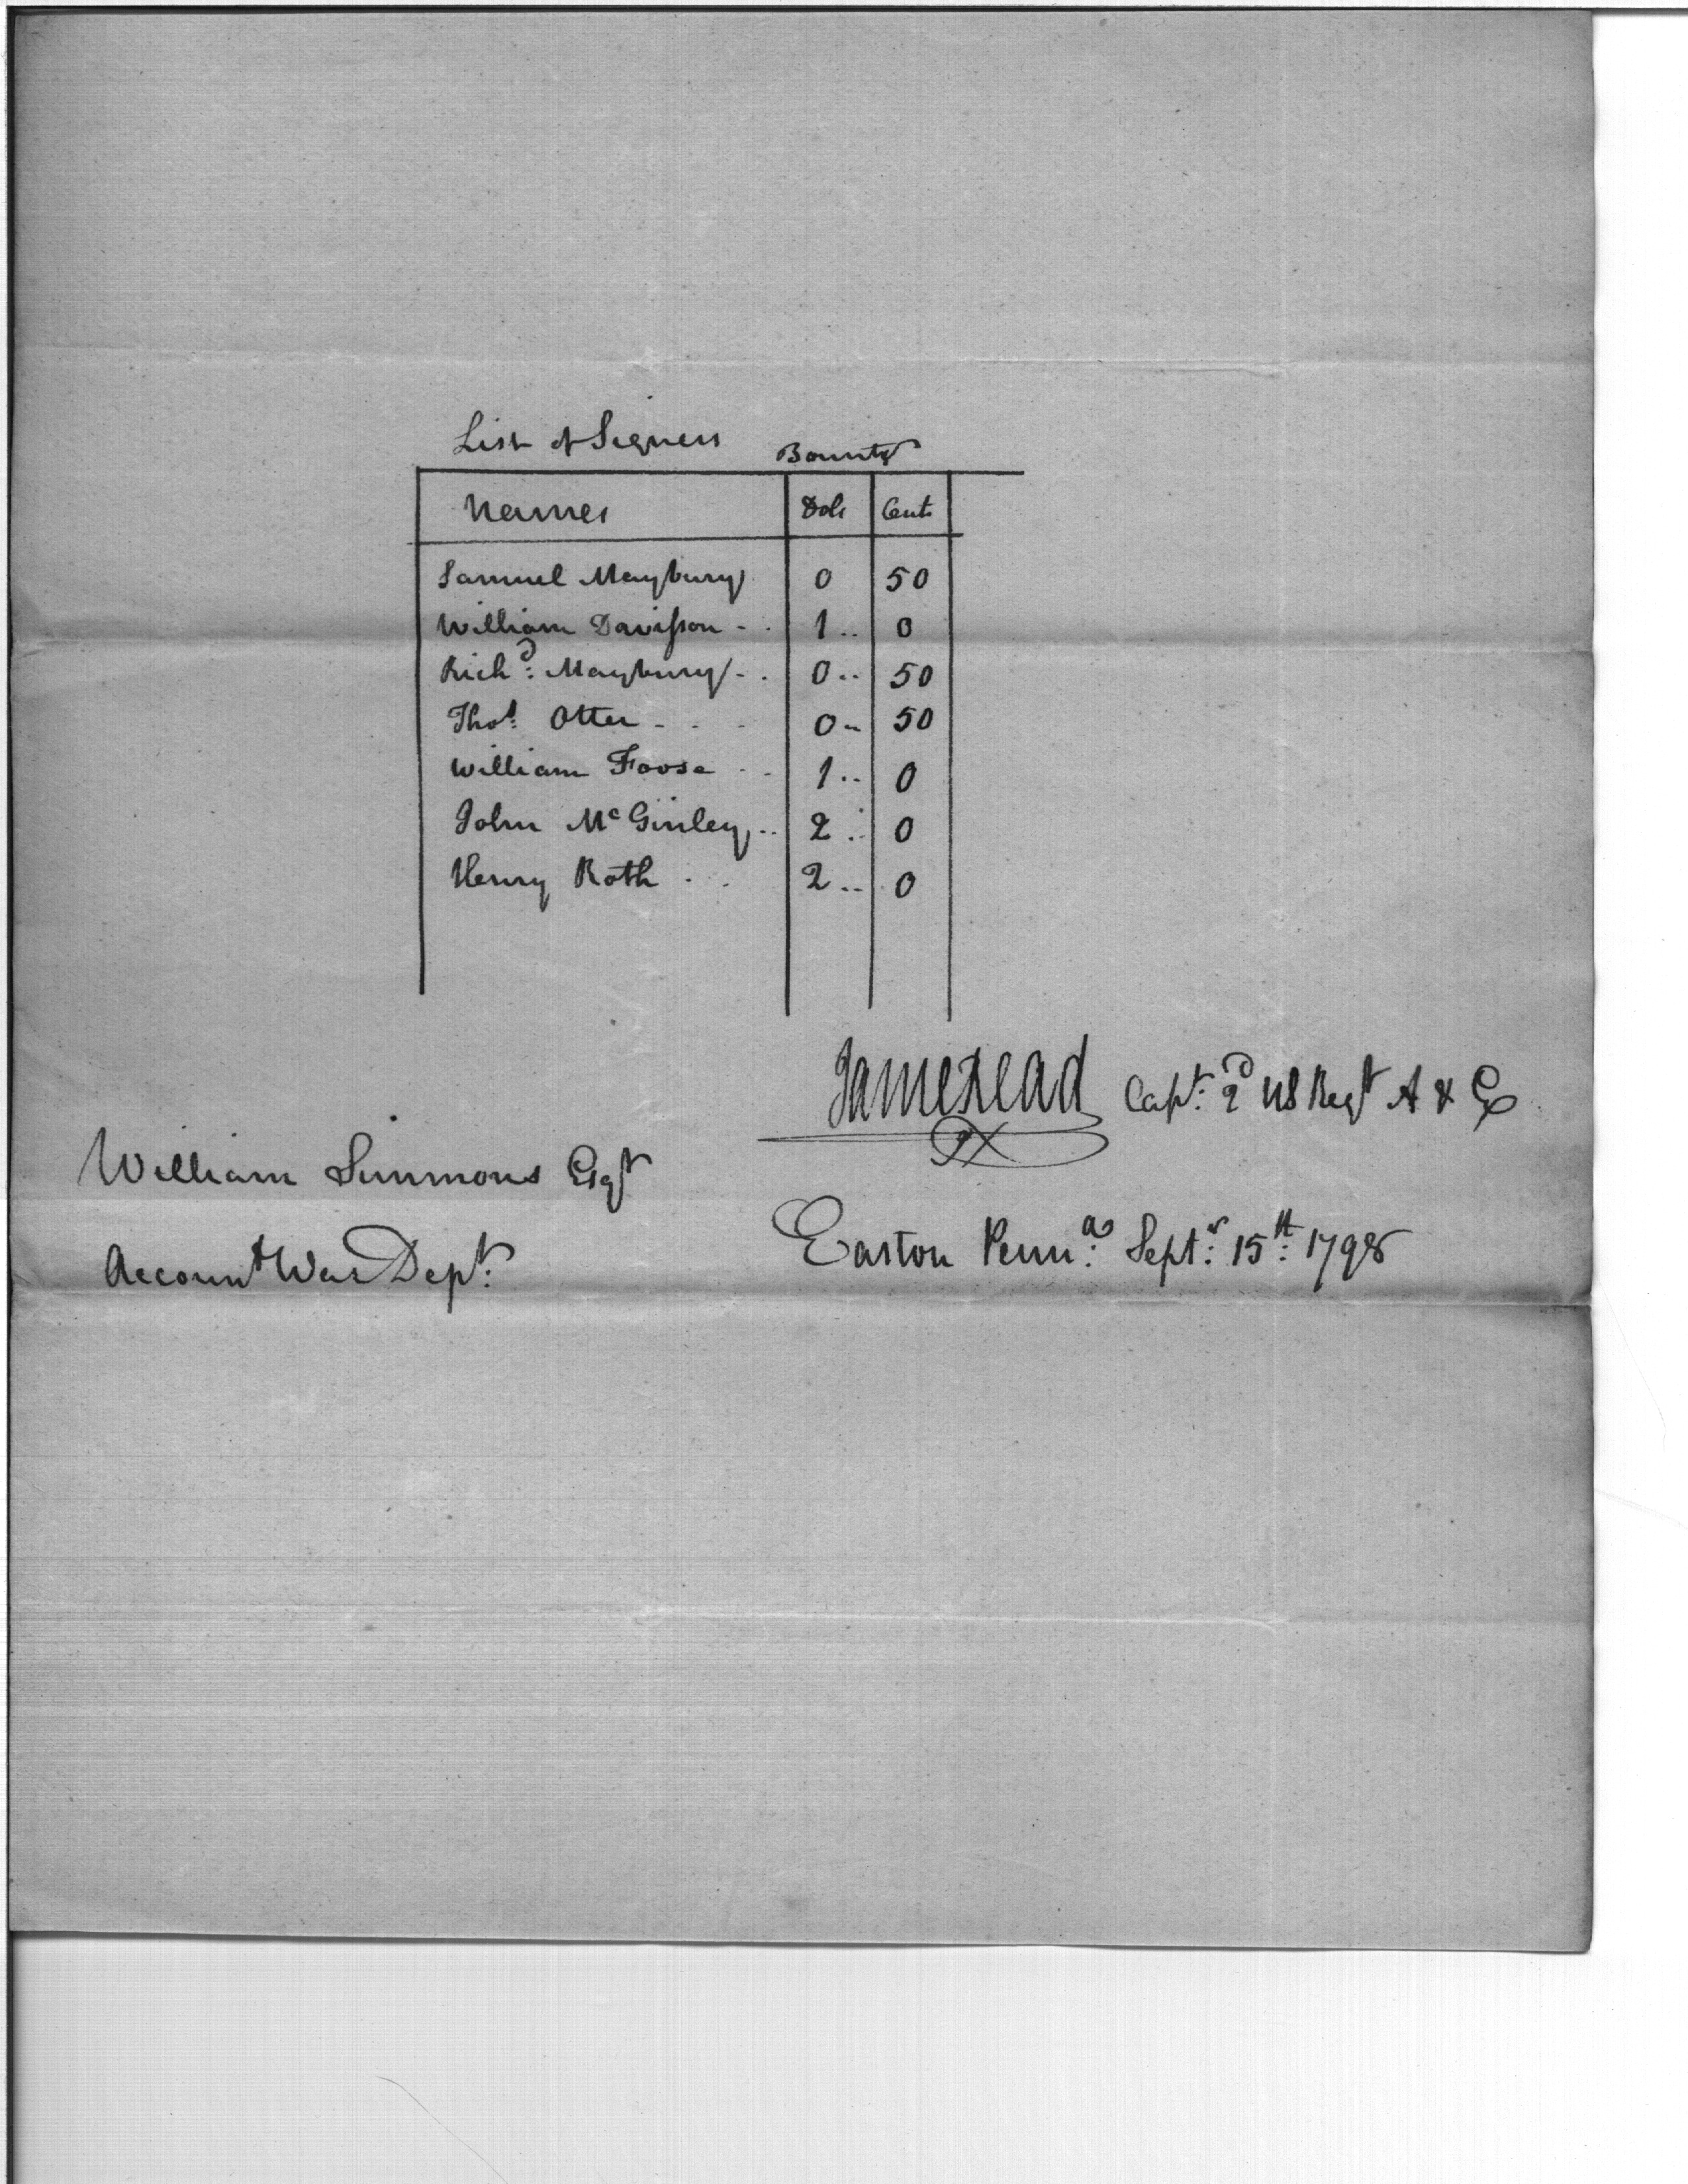 List of Signers Bounty
Names Dols Cents
Samuel Maybury 0 50
William Davisson - . 1.. 0
Richd: Maybury - . 0.. 50
Thos: Otter - . - 0.. 50
William Foose - - 1.. 0
John McGinley .. 2 .. 0
Henry Roth . . . 2.. 0
James Read Capt: 2d US Regt A & E
William Simmons Esqr
Easton Penna: Septr: 15th: 1798
Account War Dept: